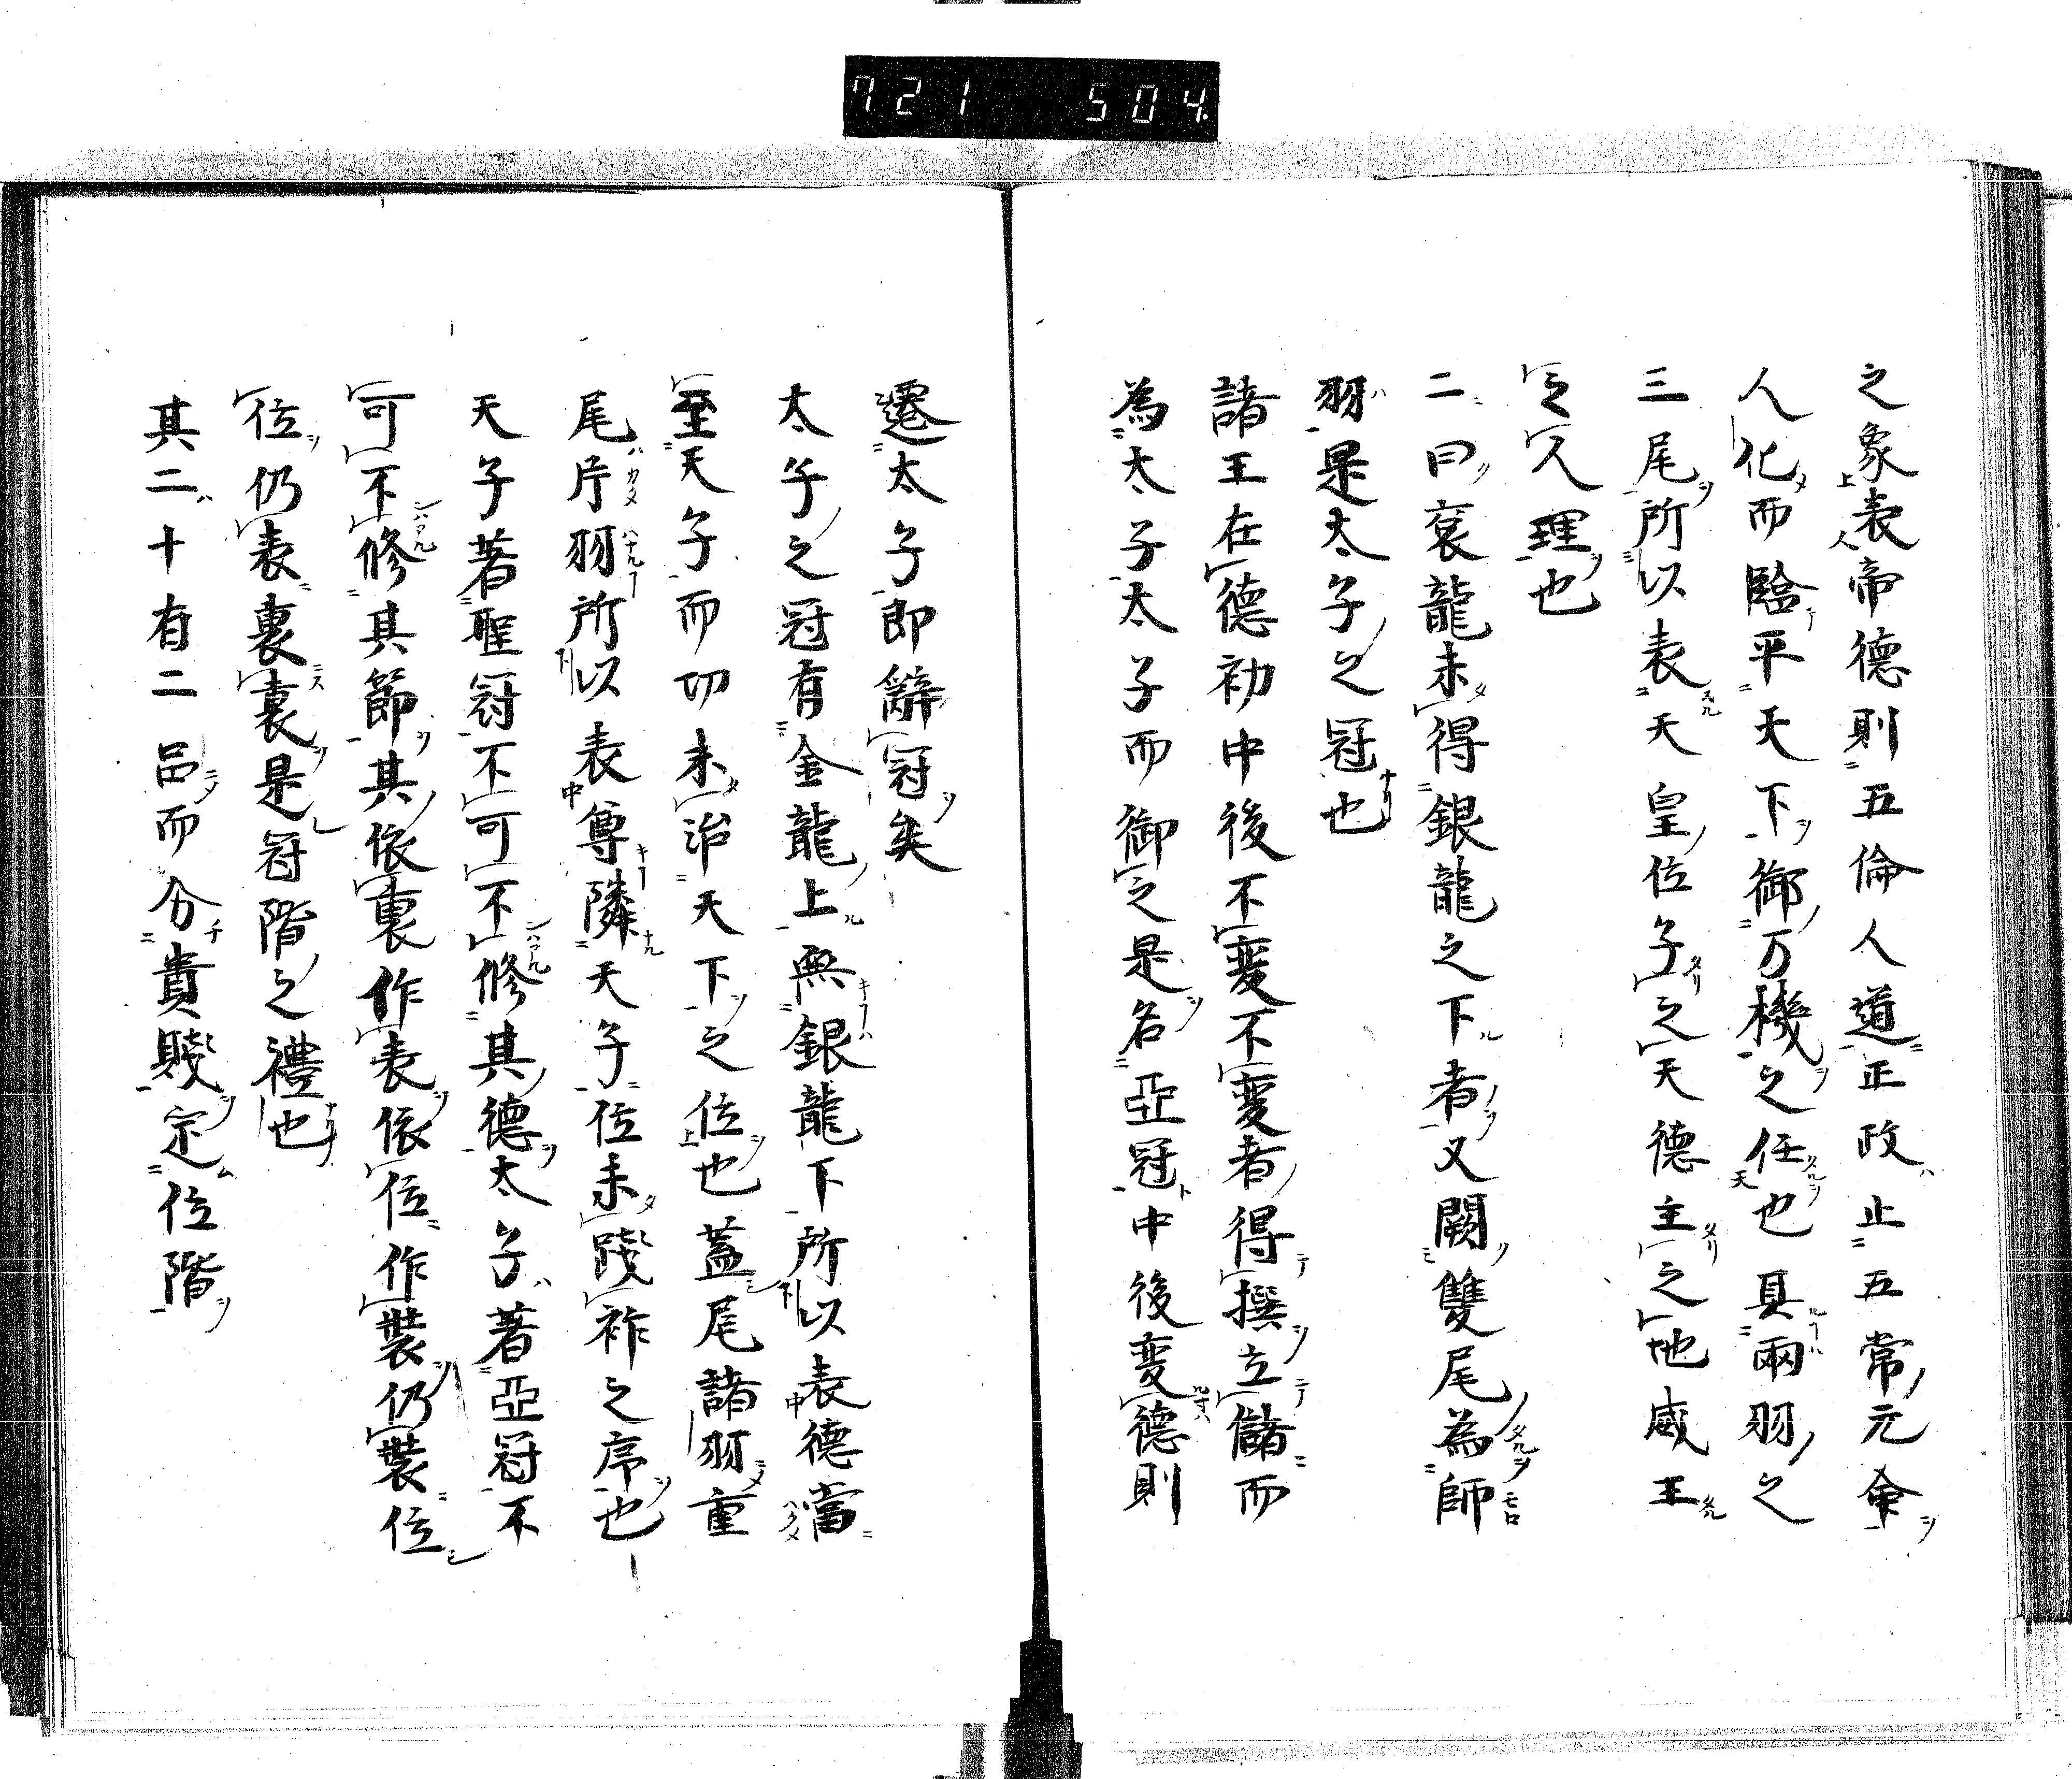 721 504
之象表帝德則五倫人道正政止五常元命
人化而臨平天下御万機之任也具兩羽之
三尾所以表天皇位子之天德主之地威王
之人理也
二曰袞龍未得銀龍之下者又闕雙尾為師
羽是太子之冠也
諸王在德初中後不変不変者得撰立儲而
為太子太子而御之是名亞冠中後変德則
遷太子即辭冠矣
太子之冠有金龍上無銀龍下所以表德當
至天子而功未治天下之位也蓋尾諸羽重
尾片羽所以表尊隣天子位未踐祚之序也
天子著聖冠不可不修其德太子著亞冠不
可不修其節其依裏作表依位作裝仍裝位
位仍表裏裏是冠階之禮也
其二十有二品而分貴賤定位階